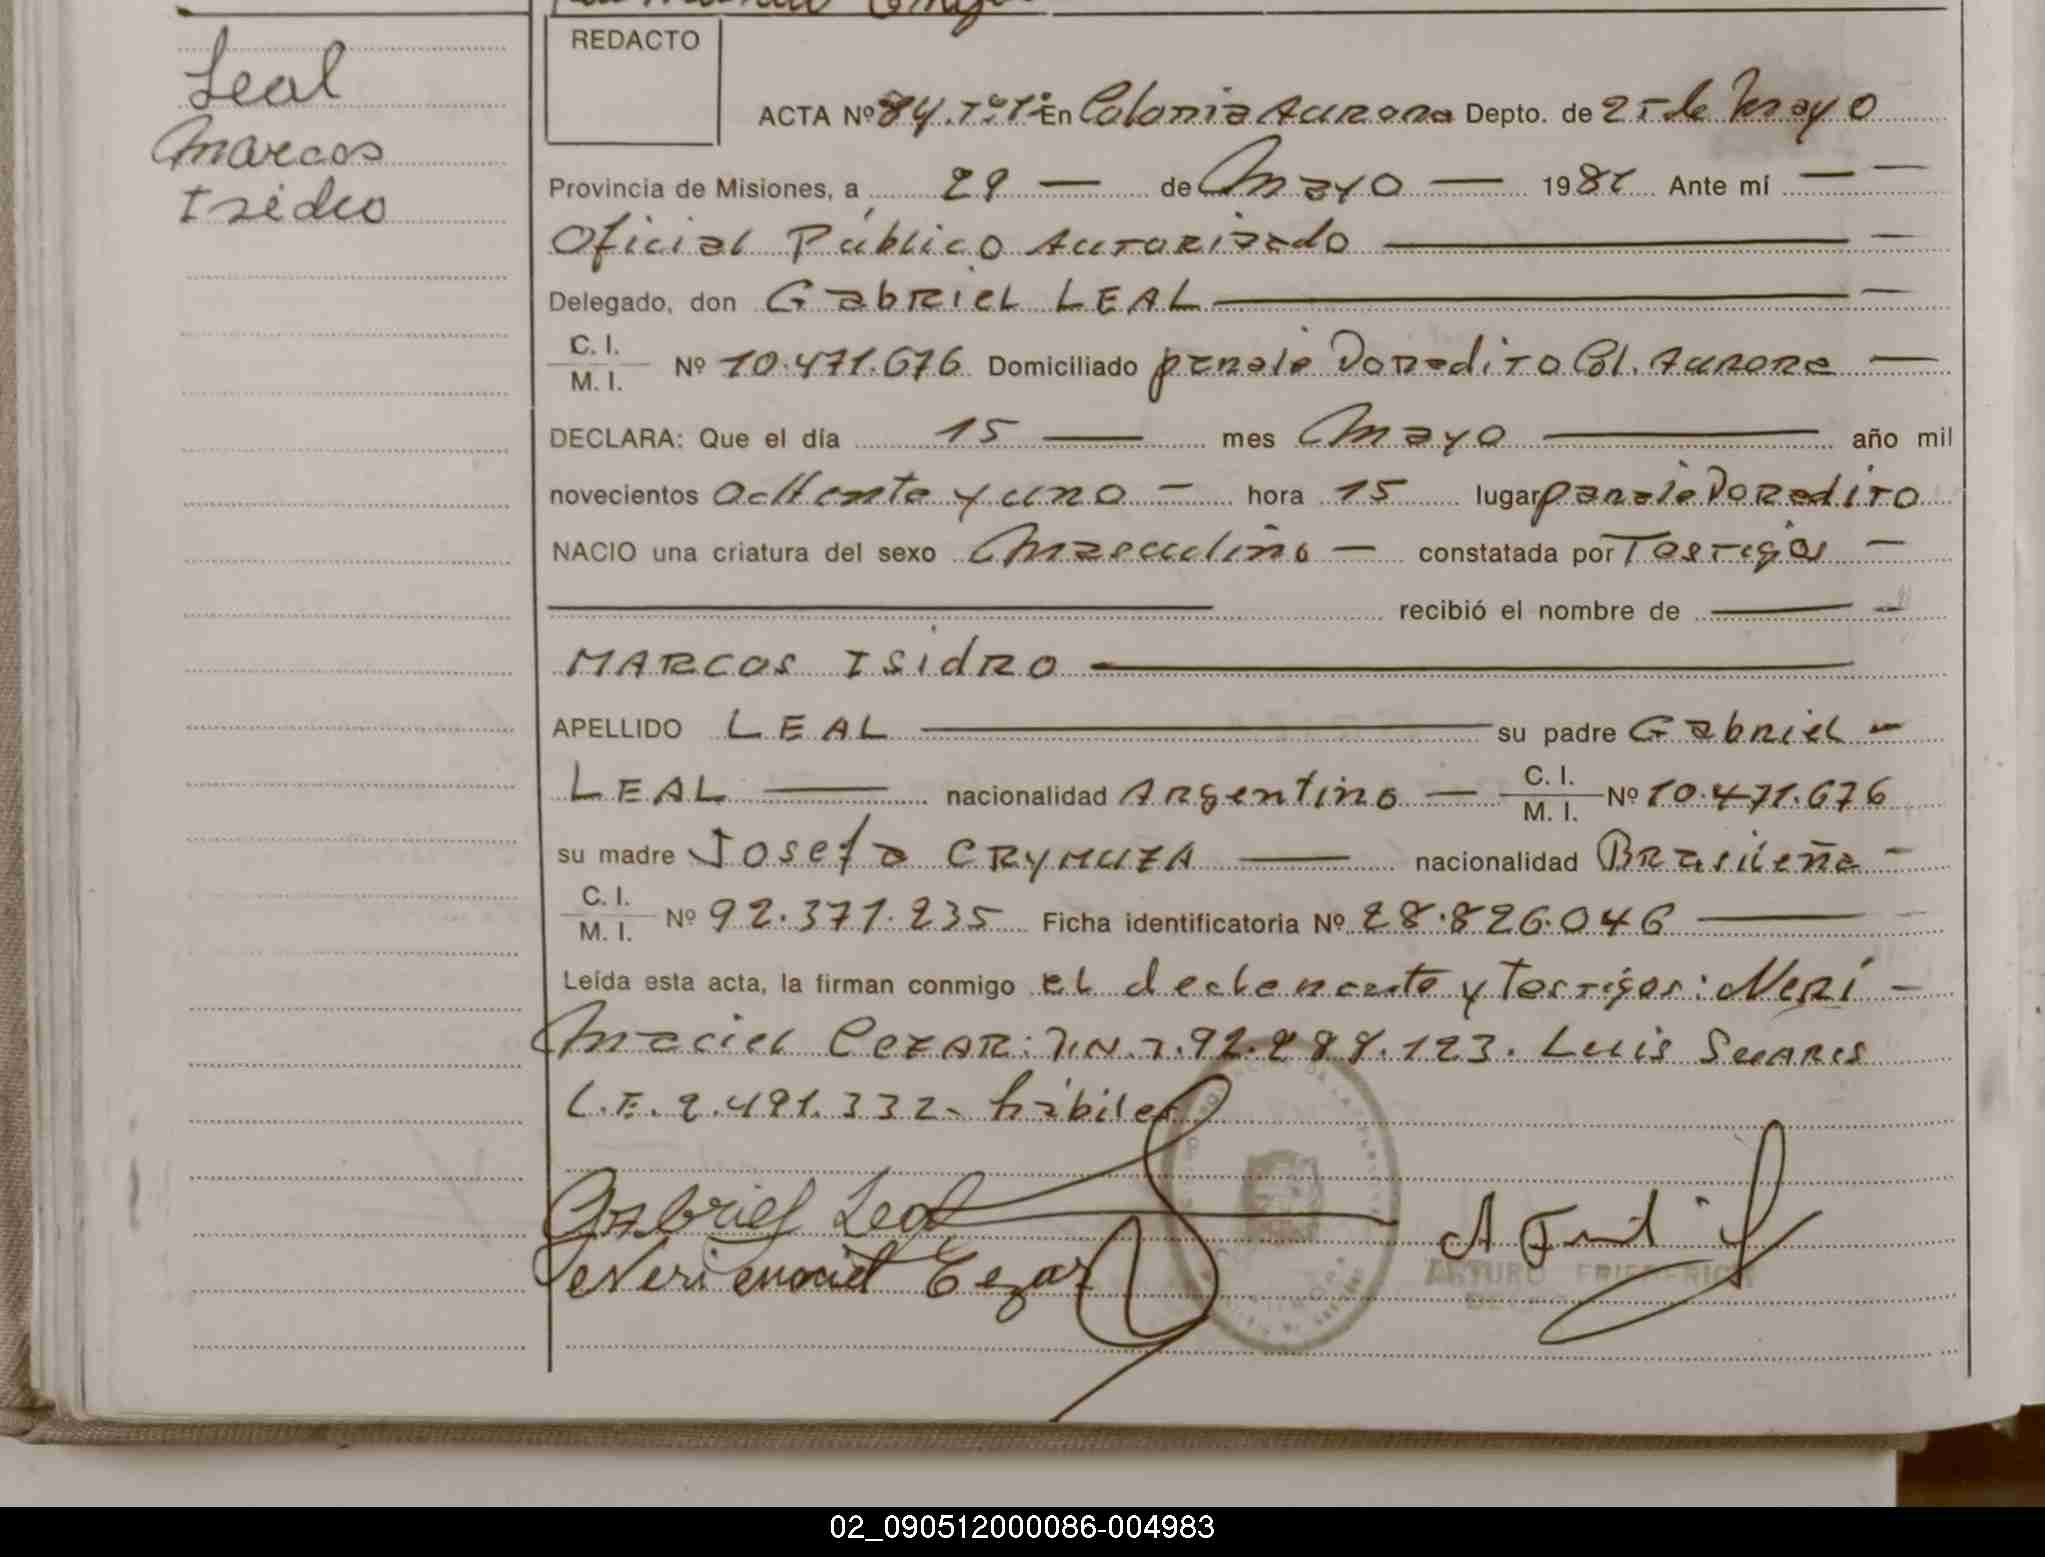 Leal
Marcos
Isidro
REDACTO
ACTA Nº 84.Tº1º En Colonia Aurora Depto. de 25 de Mayo
Provincia de Misiones, a 29 — de Mayo — 1981 Ante mí — —
Oficial Público Autorizado — —
Delegado, don Gabriel LEAL — —
C. I.
M. I. Nº 10.471.676 Domiciliado paraje Doradito Col. Aurora —
DECLARA: Que el día 15 — mes Mayo — año mil
novecientos ochenta y uno — hora 15 lugar paraje Doradito
NACIO una criatura del sexo Masculino — constatada por Testigos —
— recibió el nombre de — —
MARCOS ISIDRO —
APELLIDO LEAL — su padre Gabriel —
LEAL — nacionalidad Argentino — C. I. M. I. Nº 10.471.676
su madre Josefa CRYMUZA — nacionalidad Brasileña —
C. I.
M. I. Nº 92.371.235 Ficha identificatoria Nº 28.826.046 — —
Leída esta acta, la firman conmigo el declarante y Testigos: Neri —
Maciel CEZAR: D.N.I. 92.288.123. Luis Suares
L.E. 2.491.332- hábiles
Gabriel Leal
Neri Cezar
ARTURO FRIEDERICH
02_090512000086-004983